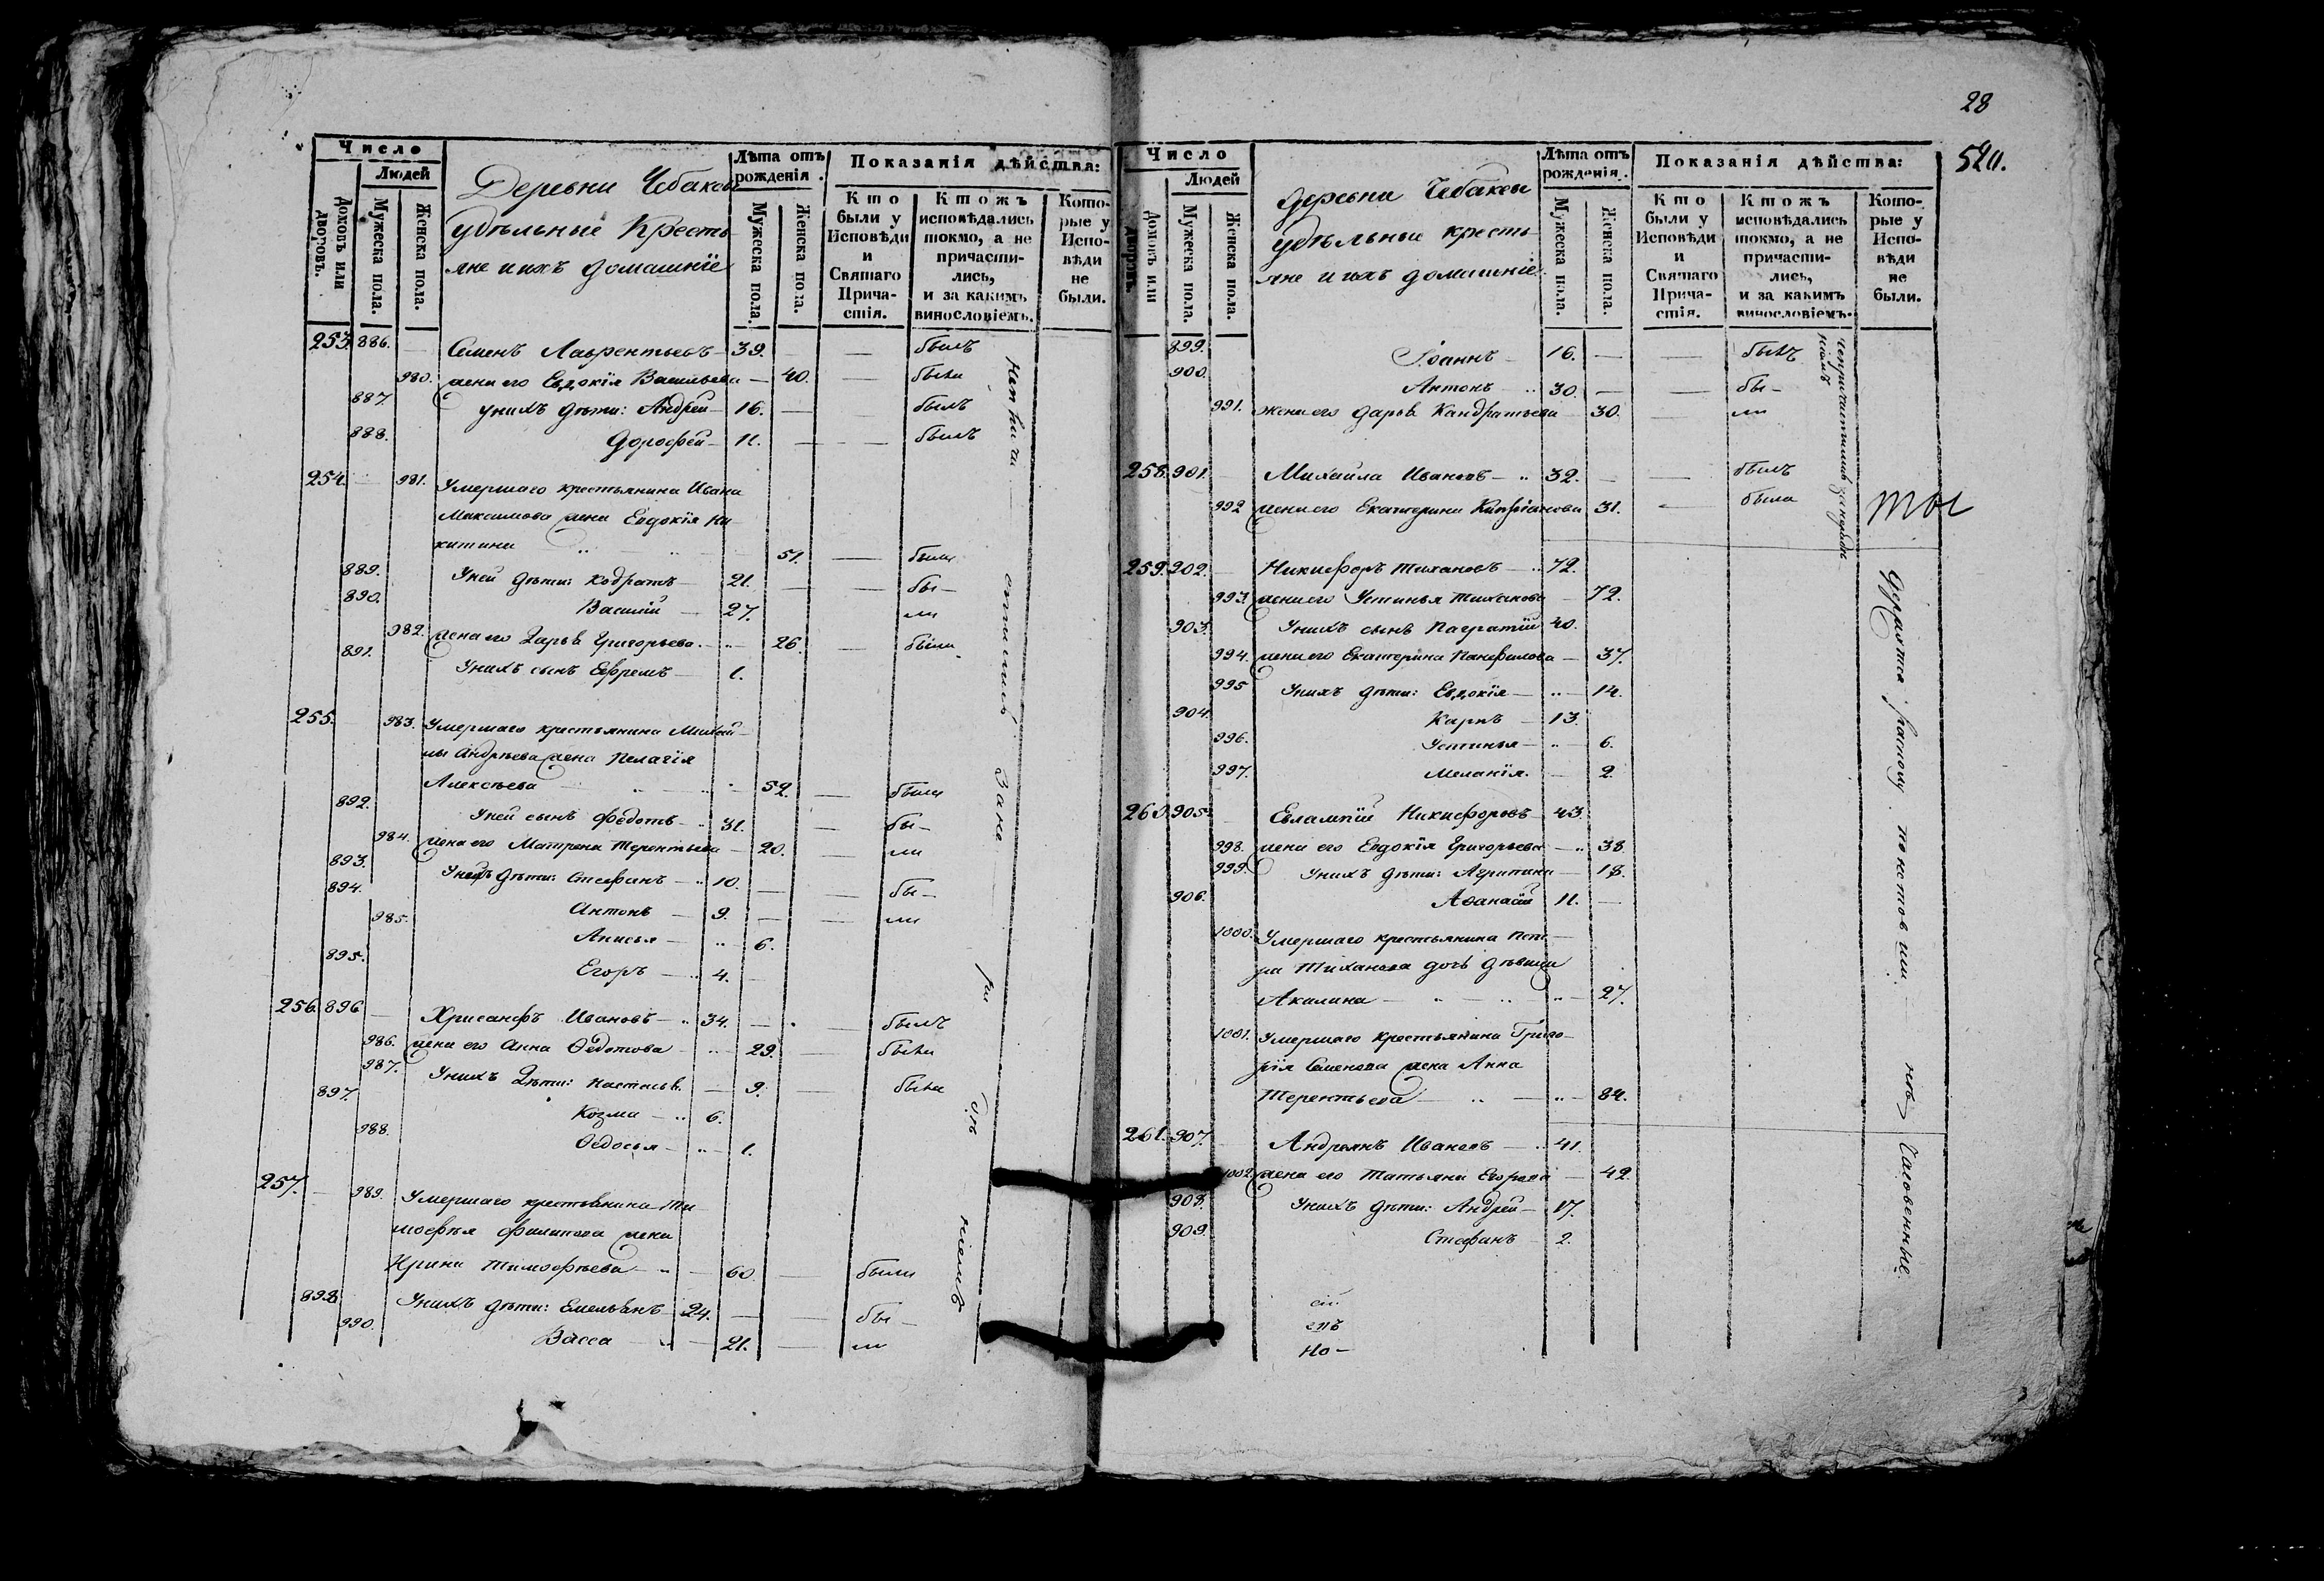 28
520.
Число
Людей
Домовъ или дворовъ.
Мужеска пола.
Женска пола.
Деревни Чебаковы
удѣльные Кресть-
яне и ихъ домашніе
Лѣта отъ рожденія.
Мужеска пола.
Женска пола.
Показанія дѣйства:
Кто были у Исповѣди и Святаго Прича-стія.
Ктожъ исповѣдались токмо, а не причасти-лись, и за какимъ винословіемъ.
Кото-рые у Испо-вѣди не были.
253. 886. — Семенъ Лаврентьевъ — 39. — — былъ
980. жена его Евдокія Васильева — 40. — была
887. у нихъ дѣти: Андрей — 16. — — былъ
888. Дорофей — 11. — — былъ
254. — 981. Умершаго крестьянина Ивана
Максимова жена Евдокія Ни-
китина 51. — была
889. У ней дѣти: Кодратъ — 21. — — бы-
890. Василій — 27. ли
982. жена его Дарья Григорьева — 26. — была
891. У нихъ сынъ Ефремъ — 1.
255. — 983. Умершаго крестьянина Михай-
лы Андрѣева жена Пелагія
Алексѣева 52. — была
892. У ней сынъ Федотъ — 31. — бы-
984. жена его Матрона Терентьева — 20. — ли
893. У нихъ дѣти: Стефанъ — 10. — — бы-
894. Антонъ — 9. — — ли
985. Анисья — 6.
895. Егоръ — 4. —
256. 896 — Хрисанфъ Ивановъ — 34. — — былъ
986. жена его Анна Ѳедотова — 29. — была
987. У нихъ дѣти: Настасья — 9. — была
897. Козма — 6.
988. Ѳедосья — 1.
257. — 989. Умершаго крестьянина Ти-
мофѣя Филипова жена
Ирина Тимофѣева — 60. — была
898 У нихъ дѣти: Емельянъ — 24. — — бы-
990. Васса — 21. — ли
Число
Людей
Домовъ или дворовъ.
Мужеска пола.
Женска пола.
Деревни Чебаковы
удѣльные кресть-
яне и ихъ домашніе
Лѣта отъ рожденія.
Мужеска пола.
Женска пола.
Показанія дѣйства:
Кто были у Исповѣди и Святаго Прича-стія.
Ктожъ исповѣдались токмо, а не причасти-лись, и за какимъ винословіемъ.
Кото-рые у Испо-вѣди не были.
899. Іоаннъ — 16. — — былъ
900. Антонъ 30. — — бы-
991. жена его Дарья Кандратьева 30. — ли
258. 901. — Михайла Ивановъ — 32. — — былъ
992 жена его Екатерина Кипріанова 31. — была
259. 902. — Никифоръ Тихановъ — 72.
993. жена его Устинья Тиханова — 72.
903. У нихъ сынъ Пагратій 40.
994. жена его Екатерина Панфилова — 37.
995 У нихъ дѣти: Евдокія — 14.
904. Карпъ — 13.
996. Устинья — 6.
997. Меланія. — 2.
260. 905. Евлампій Никифоровъ — 43.
998. жена его Евдокія Григорьева — 38.
999. У нихъ дѣти: Агрипина — 18.
906. Аѳанасій 11. —
1000. Умершаго крестьянина Пет-
ра Тиханова дочь дѣвица
Акилина — 27.
1001. Умершаго крестьянина Григо-
рія Семенова жена Анна
Терентьева — 84.
261. 907. Андреянъ Ивановъ — 41.
1002 жена его Татьяна Егорова — 42.
908. У нихъ дѣти: Андрей — 17.
909. Стефанъ 2.